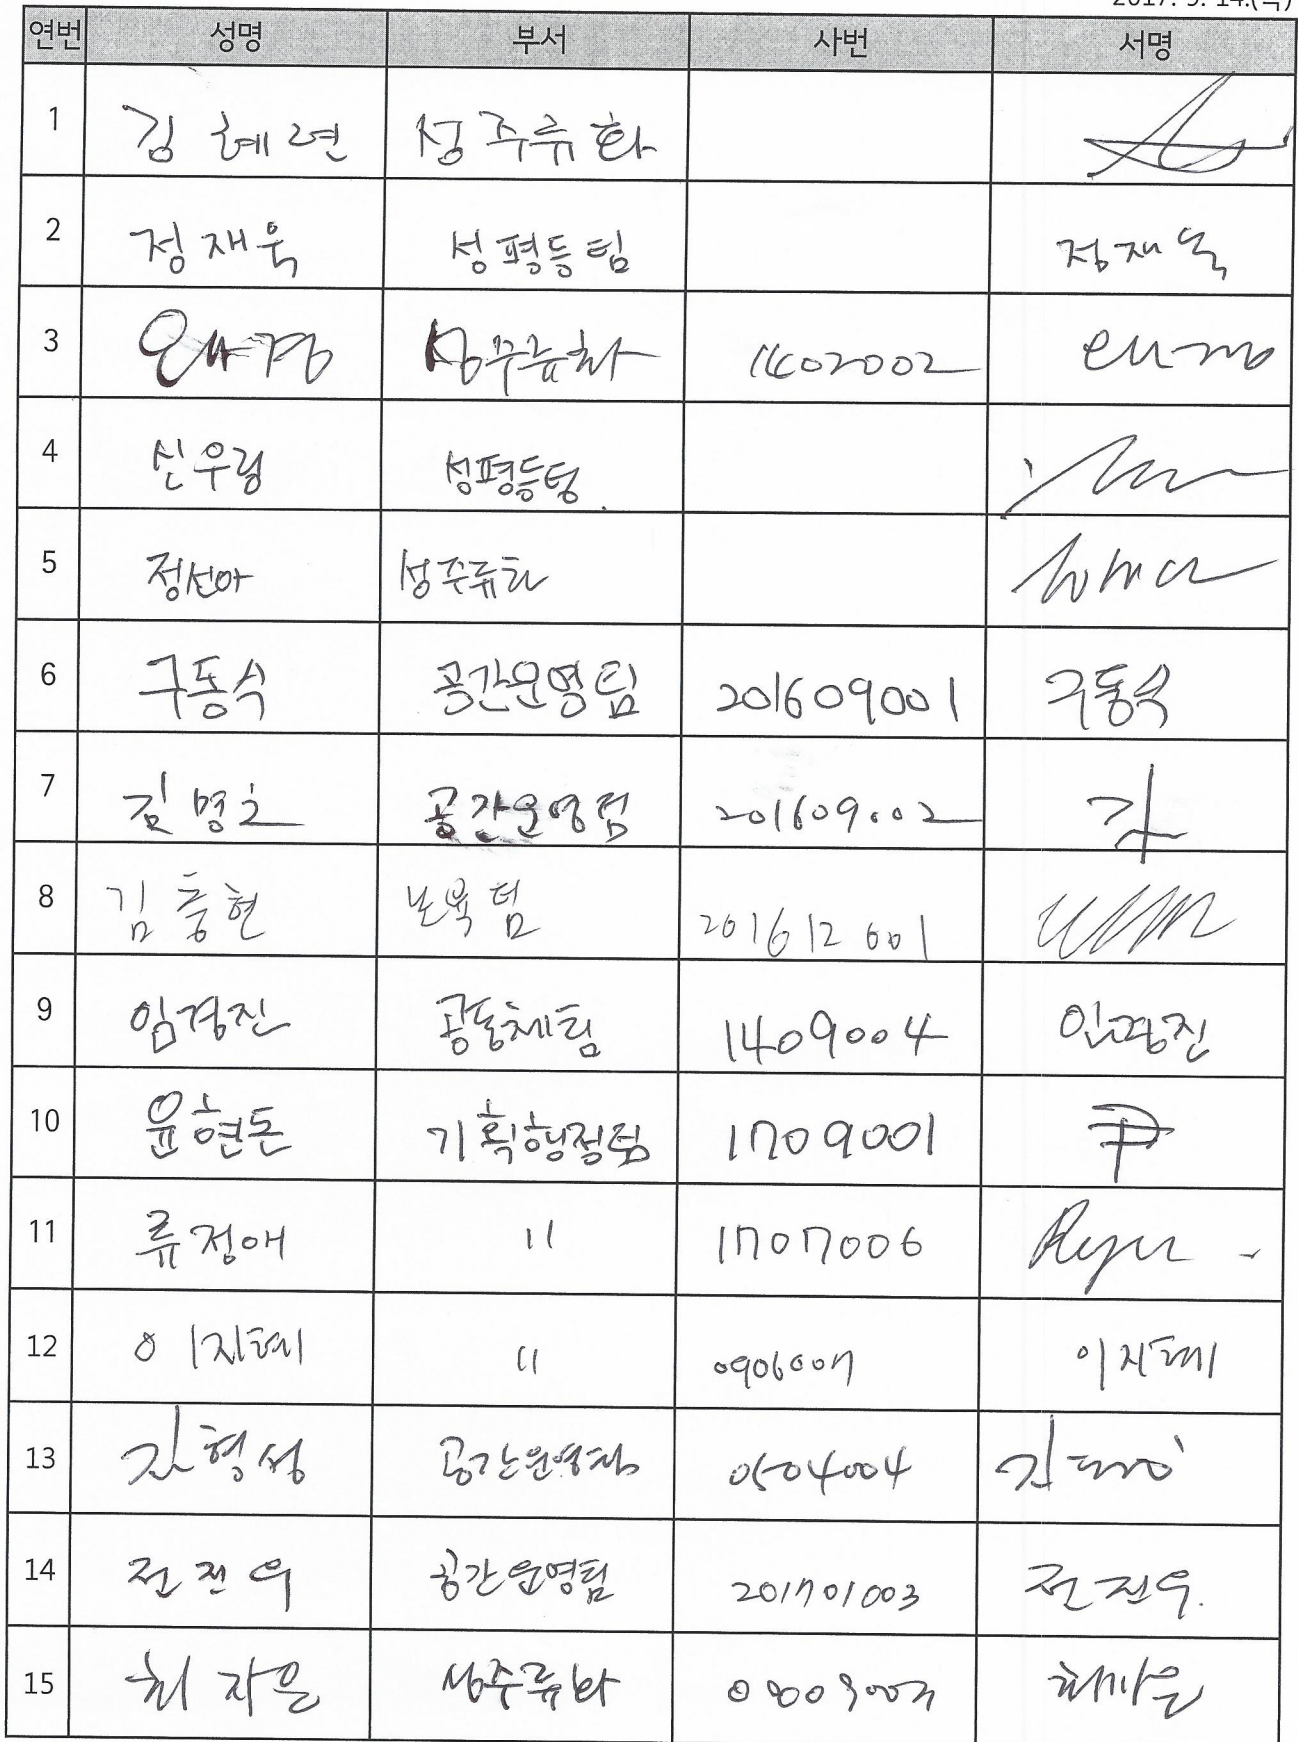 연번 성명 부서 사번 서명
1 김혜련 성주류화
2 정재욱 성평등팀 정재욱
3 성주류화 1402002
4 신우경 성평등팀
5 정선아 성주류화
6 구동식 공간운영팀 201609001 구동식
7 김명호 공간운영팀 201609002 김
8 김충현 팀 201612001
9 임경진 공동체팀 1409004 임경진
10 윤현돈 기획행정팀 1709001 尹
11 류정애 〃 1707006 Ryu
12 이지혜 〃 0906007 이지혜
13 김형성 공간운영팀 0504004 김
14 전진우 공간운영팀 201701003 전진우
15 최자은 성주류화 최자은